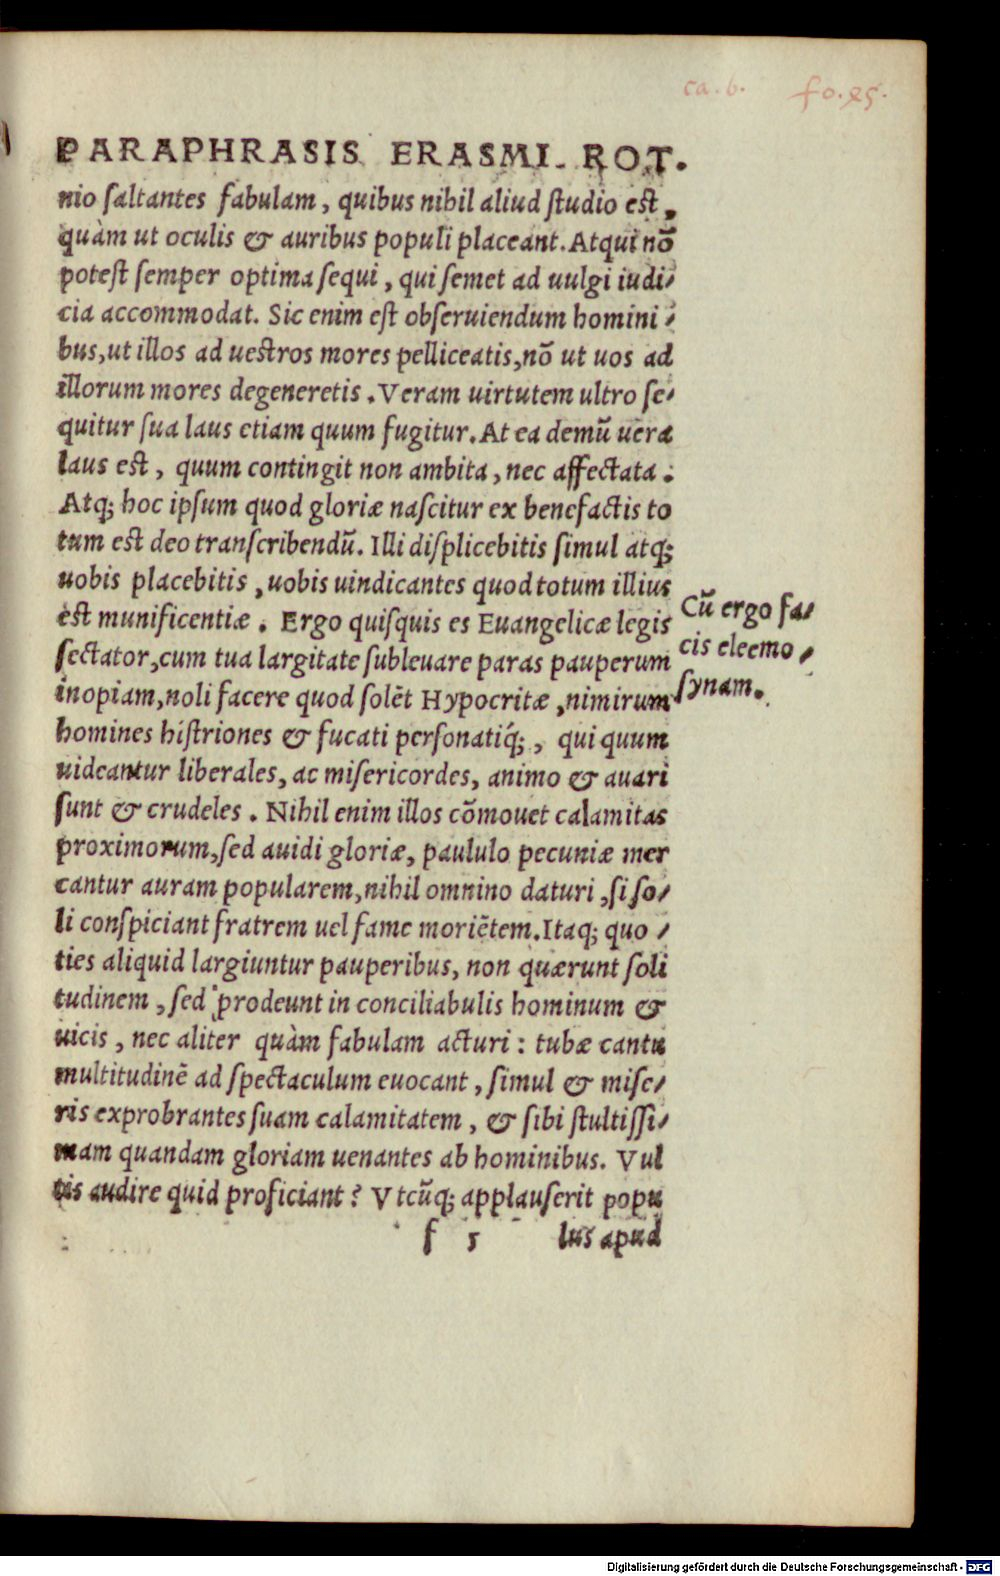 ca. b. fo.
PARAPHRASIS ERASMI. ROT.
nio ſaltantes fabulam, quibus nihil aliud ſtudio eſt,
quàm ut oculis & auribus populi placeant. Atqui nõ
poteſt ſemper optima ſequi, qui ſemet ad uulgi iudi⸗
cia accommodat. Sic enim eſt obſeruiendum homini⸗
bus, ut illos ad ueſtros mores pelliceatis, nõ ut uos ad
illorum mores degeneretis. Veram uirtutem ultro ſe⸗
quitur ſua laus etiam quum fugitur. At ea demũ uera
laus eſt, quum contingit non ambita, nec affectata.
Atq; hoc ipſum quod gloriæ naſcitur ex benefactis to
tum eſt deo tranſcribendũ. Illi diſplicebitis ſimul atq;
uobis placebitis, uobis uindicantes quod totum illius
eſt munificentiæ. Ergo quiſquis es Euangelicæ legis
ſectator, cum tua largitate ſubleuare paras pauperum
inopiam, noli facere quod ſolẽt Hypocritæ, nimirum
homines hiſtriones & fucati perſonatiq́;, qui quum
uideantur liberales, ac miſericordes, animo & auari
ſunt & crudeles. Nihil enim illos cõmouet calamitas
proximorum, ſed auidi gloriæ, paululo pecuniæ mer
cantur auram popularem, nihil omnino daturi, ſi ſo⸗
li conſpiciant fratrem uel fame moriẽtem. Itaq; quo⸗
ties aliquid largiuntur pauperibus, non quærunt ſoli
tudinem, ſed prodeunt in conciliabulis hominum &
uicis, nec aliter quàm fabulam acturi: tubæ cantu
multitudinẽ ad ſpectaculum euocant, ſimul & miſe⸗
ris exprobrantes ſuam calamitatem, & ſibi ſtultiſſi⸗
mam quandam gloriam uenantes ab hominibus. Vul
tis audire quid proficiant? Vtcũq; applauſerit popu
f 5 lus apud
Cũ ergo fa⸗
cis eleemo⸗
ſynam.
Digitalisierung gefördert durch die Deutsche Forschungsgemeinschaft - DFG